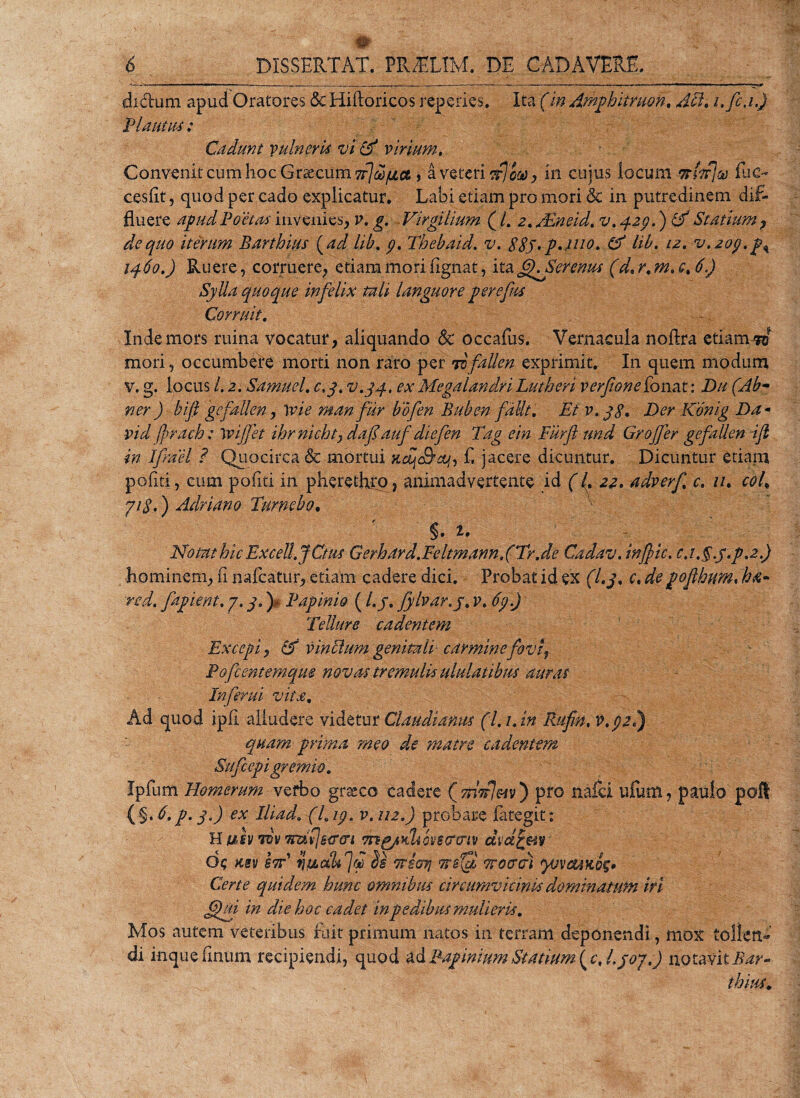 6 DISSERTAT. PRÆLIM. DE CADAVERE.
dictum apud Oratores & Historicos reperies. Ita (in Amphitruon. Act. 1. sc.1.)
Plautus:
Cadunt vulneris vi & virium.
Convenit cum hoc Græcum πτῶμα, à veteri πτόω, in cujus locum πίπτω suc-
cessit, quod per cado explicatur. Labi etiam pro mori & in putredinem dif-
fluere apud Poëtas invenies, v. g. Virgilium (l. 2. Æneid. v. 429.) & Statium,
de quo iterum Barthius (ad lib. 9. Thebaid. v. 885. p. 1110. & lib. 12. v. 209. p.
1460.) Ruere, corruere, etiam mori signat, ita Q. Serenus (d. r. m. c. 6.)
Sylla quoque infelix tali languore peresus
Corruit.
Inde mors ruina vocatur, aliquando & occasus. Vernacula nostra etiam τὸ
mori, occumbere morti non raro per τὸ fallen exprimit. In quem modum
v. g. locus l. 2. Samuel. c. 3. v. 34. ex Megalandri Lutheri versione sonat: Du (Ab-
ner) bist gefallen, wie man für bösen Buben fällt. Et v. 38. Der König Da-
vid sprach: wisset ihr nicht, daß auf diesen Tag ein Fürst und Grosser gefallen ist
in Israël? Quocirca & mortui κεῖσθαι, s. jacere dicuntur. Dicuntur etiam
positi, cum positi in pherethro, animadvertente id (l. 22. advers. c. 11. col.
718.) Adriano Turnebo.
§. 2.
Notat hic Excell. JCtus Gerhard. Feltmann. (Tr. de Cadav. inspic. c.1. §.5. p.2.)
hominem, si nascatur, etiam cadere dici. Probat id ex (l.3. c. de posthum. hæ-
red. sapient. 7. 3.) Papinio (l.5. sylvar.5. v. 69.)
Tellure cadentem
Excepi, & vinctum genitali carmine fovi,
Poscentemque novas tremulis ululatibus auras
Inserui vitæ.
Ad quod ipsi alludere videtur Claudianus (l. 1. in Rufin. v. 92.)
quam prima meo de matre cadentem
Suscepi gremio.
Ipsum Homerum verbo græco cadere (πίπτειν) pro nasci usum, paulo post
(§. 6. p. 3.) ex Iliad. (l. 19. v. 112.) probare sategit:
Η μὲν τὸν πάντεσσι περικτιόνεσσιν ἀνάξειν
Ὅς κεν ἐπ' ἤματι τῷ δὲ πέσῃ μετὰ ποσσὶ γυναικός.
Certe quidem hunc omnibus circumvicinis dominatum iri
Qui in die hoc cadet in pedibus mulieris.
Mos autem veteribus fuit primum natos in terram deponendi, mox tollen-
di inque sinum recipiendi, quod ad Papinium Statium (c. l. 507.) notavit Bar-
thius.